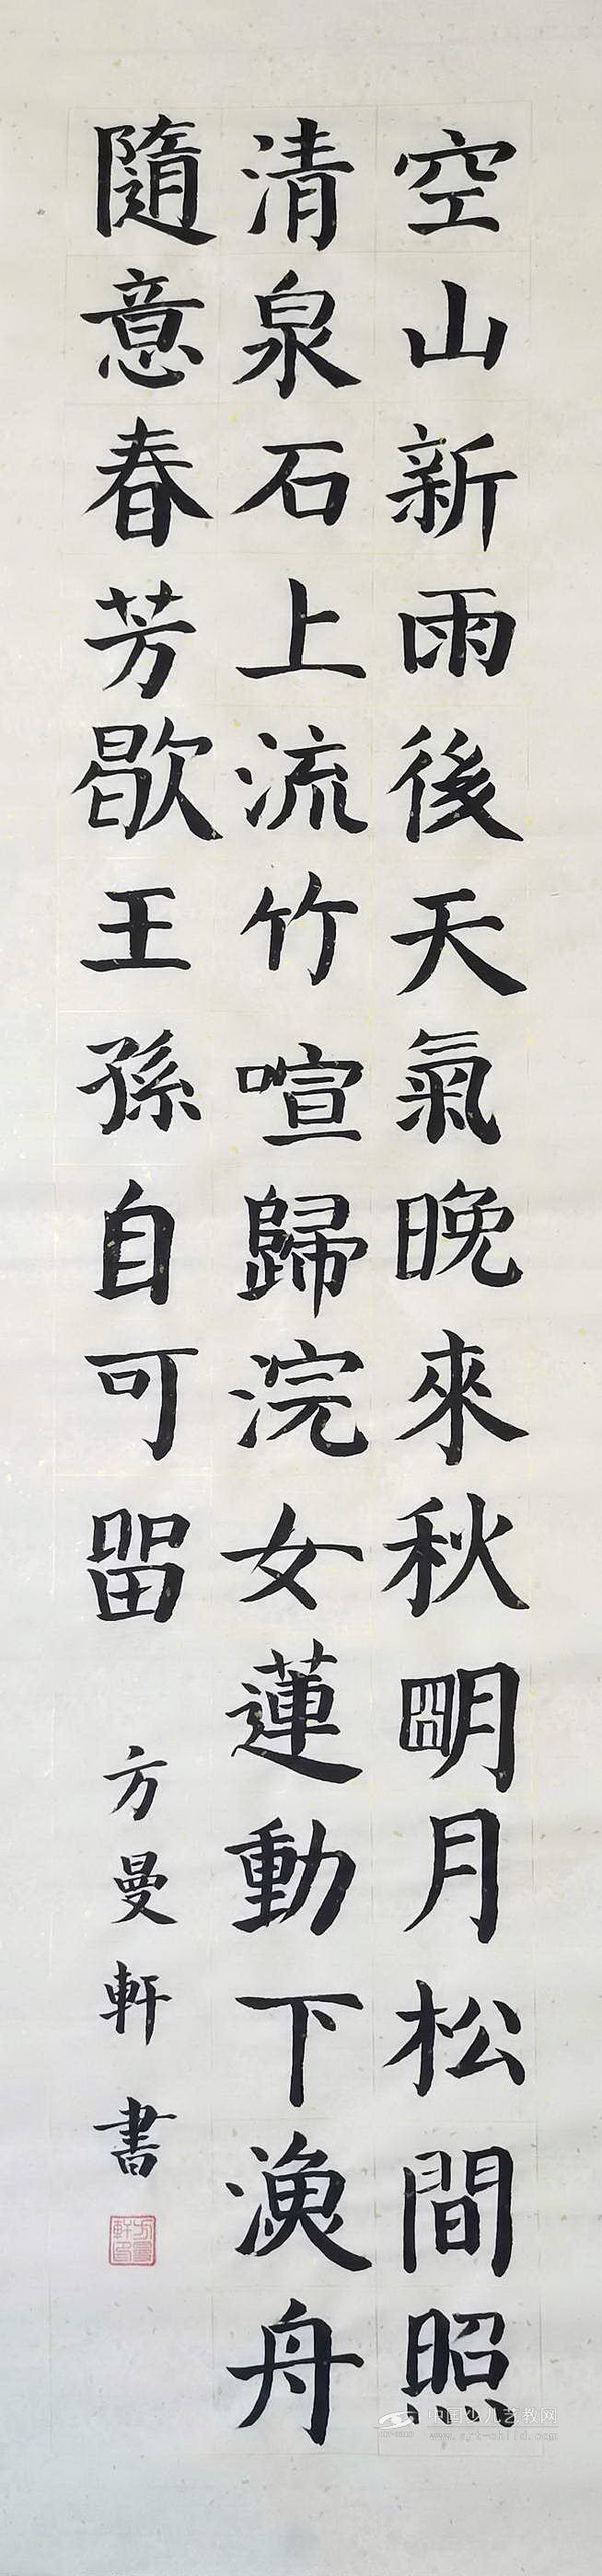 空山新雨後天氣晚來秋明月松間照
清泉石上流竹喧歸浣女蓮動下漁舟
隨意春芳歇王孫自可留
方曼軒書
中国少儿艺教网
www.art-child.com